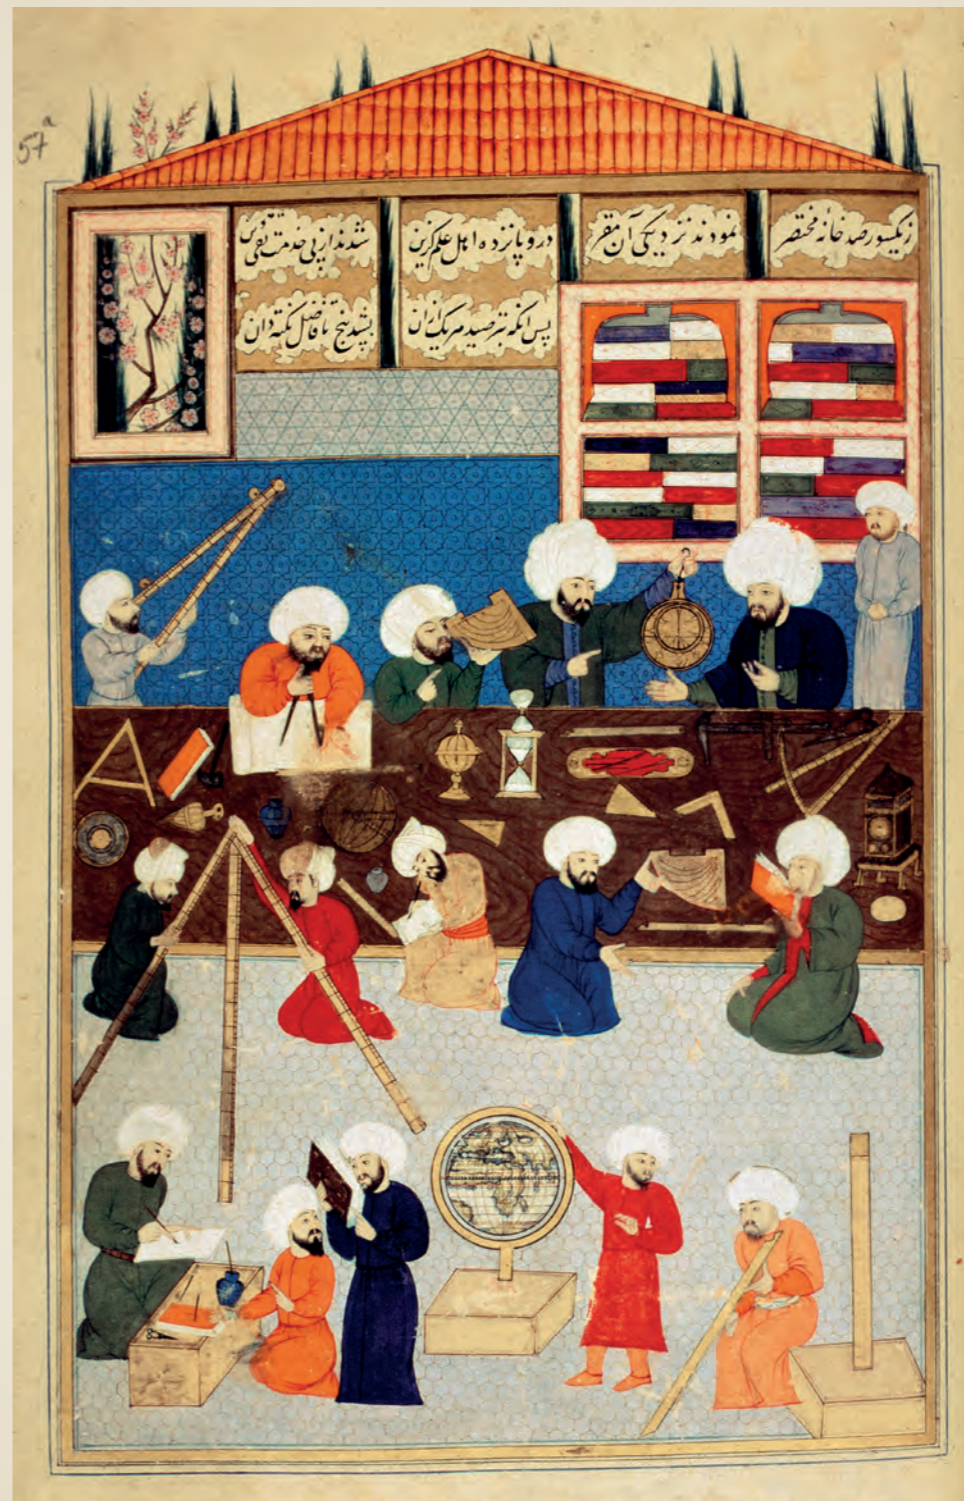 57a
زیکسو رصد خانه مختصر
نمودند نزدیکی آن مقر
درو پانزده اهل علم گزین
شدند از پی خدمت تقی دین
پس انکه بتر صید هر یک ازان
بشد پنج تا فاضل نکته دان